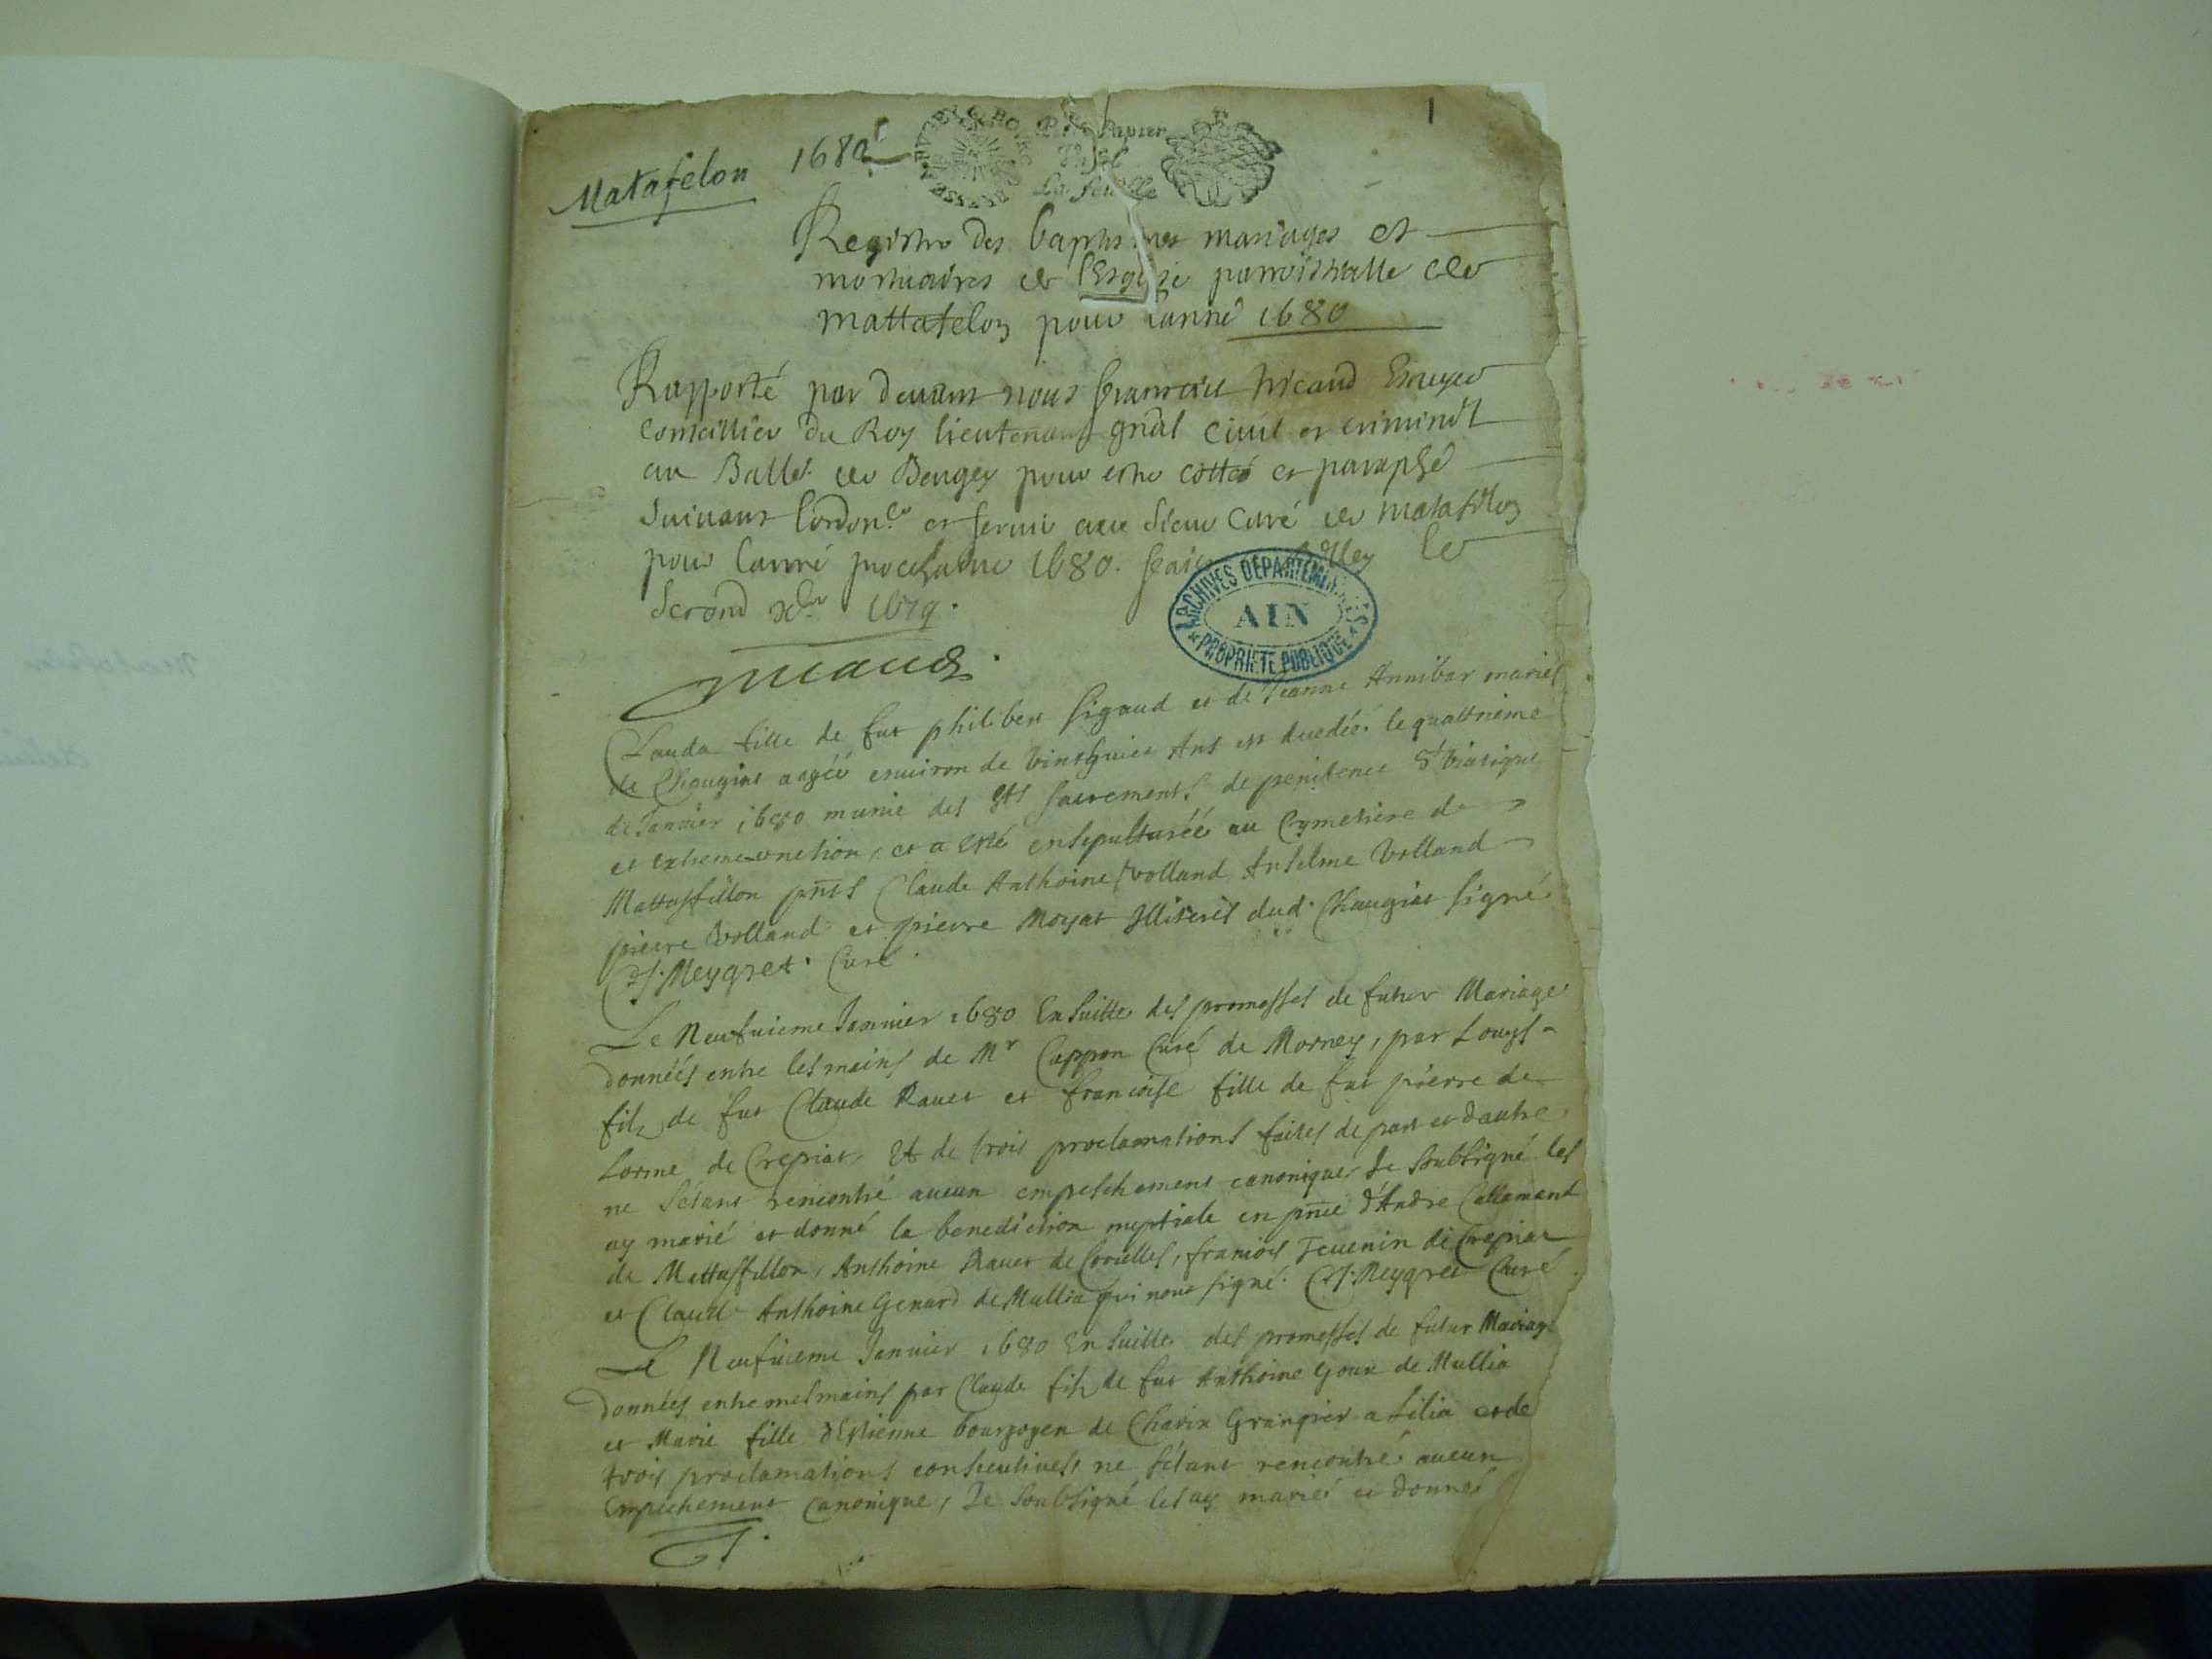 1
Matafelon 1680
Papier
La feuille
Registre des baptesmes mariages et
mortuaires de l'Esglise parroissialle de
mattafelon pour l'anné 1680
Rapporté par devant nous Escuyer
Conseillier du Roy lieutenant gnãl civil et criminel
au Balle. de Beugey pour estre cottes et paraphé
suivant l'ordonce et servir aux sieur Curé de matafelon
pour l'anné prochaine 1680. le
second xbre 1679.
ARCHIVES DÉPARTEMENTALES
AIN
PROPRIÉTÉ PUBLIQUE
Clauda fille de fut philibert Sigaud et de Jeanne Annibar mariés
de Chougiat aagée environ de Ans est decedée le quattrieme
de Janvier 1680 munie des Sts sacrements de penitence St Viatique
et extreme onction, et a esté ensepulturée au Cymetiere de
Mattaffellon pñts Claude Anthoine Volland Anselme Volland
pierre Volland et pierre Moyat Illiterés dud. Chougiat signé
Meygret. Curé.
Le Neufuieme Janvier 1680 Ensuitte des promesses de futur Mariage
données entre les mains de Mr Cappon Curé de Mornay, par Louys
filz de fut Claude Ravet et francoise fille de fut pierre de
Lorme de Crepiat, Et de trois proclamations faites de part et dautre
ne s'étant rencontré aucun empeschement canonique, Je soubsigné les
ay marié et donné la benediction nuptiale en pñce d'Andre Callamand
de Mattaffellon, Anthoine Ravet de Corcelles, francois Tevenin de Crepiat
et Claude Anthoine Genard de Mullia qui nont signé. Meygret Curé.
Le Neufuieme Janvier 1680 Ensuitte des promesses de futur Mariage
données entre mes mains par Claude filz de fut Anthoine Goux de Mullia
et Marie fille d'Estienne bourgoyen de Charix Grangier a Silia et de
trois proclamations consecutives ne s'étant rencontré aucun
Empéchement canonique, Je soubsigné les ay mariés et donnés